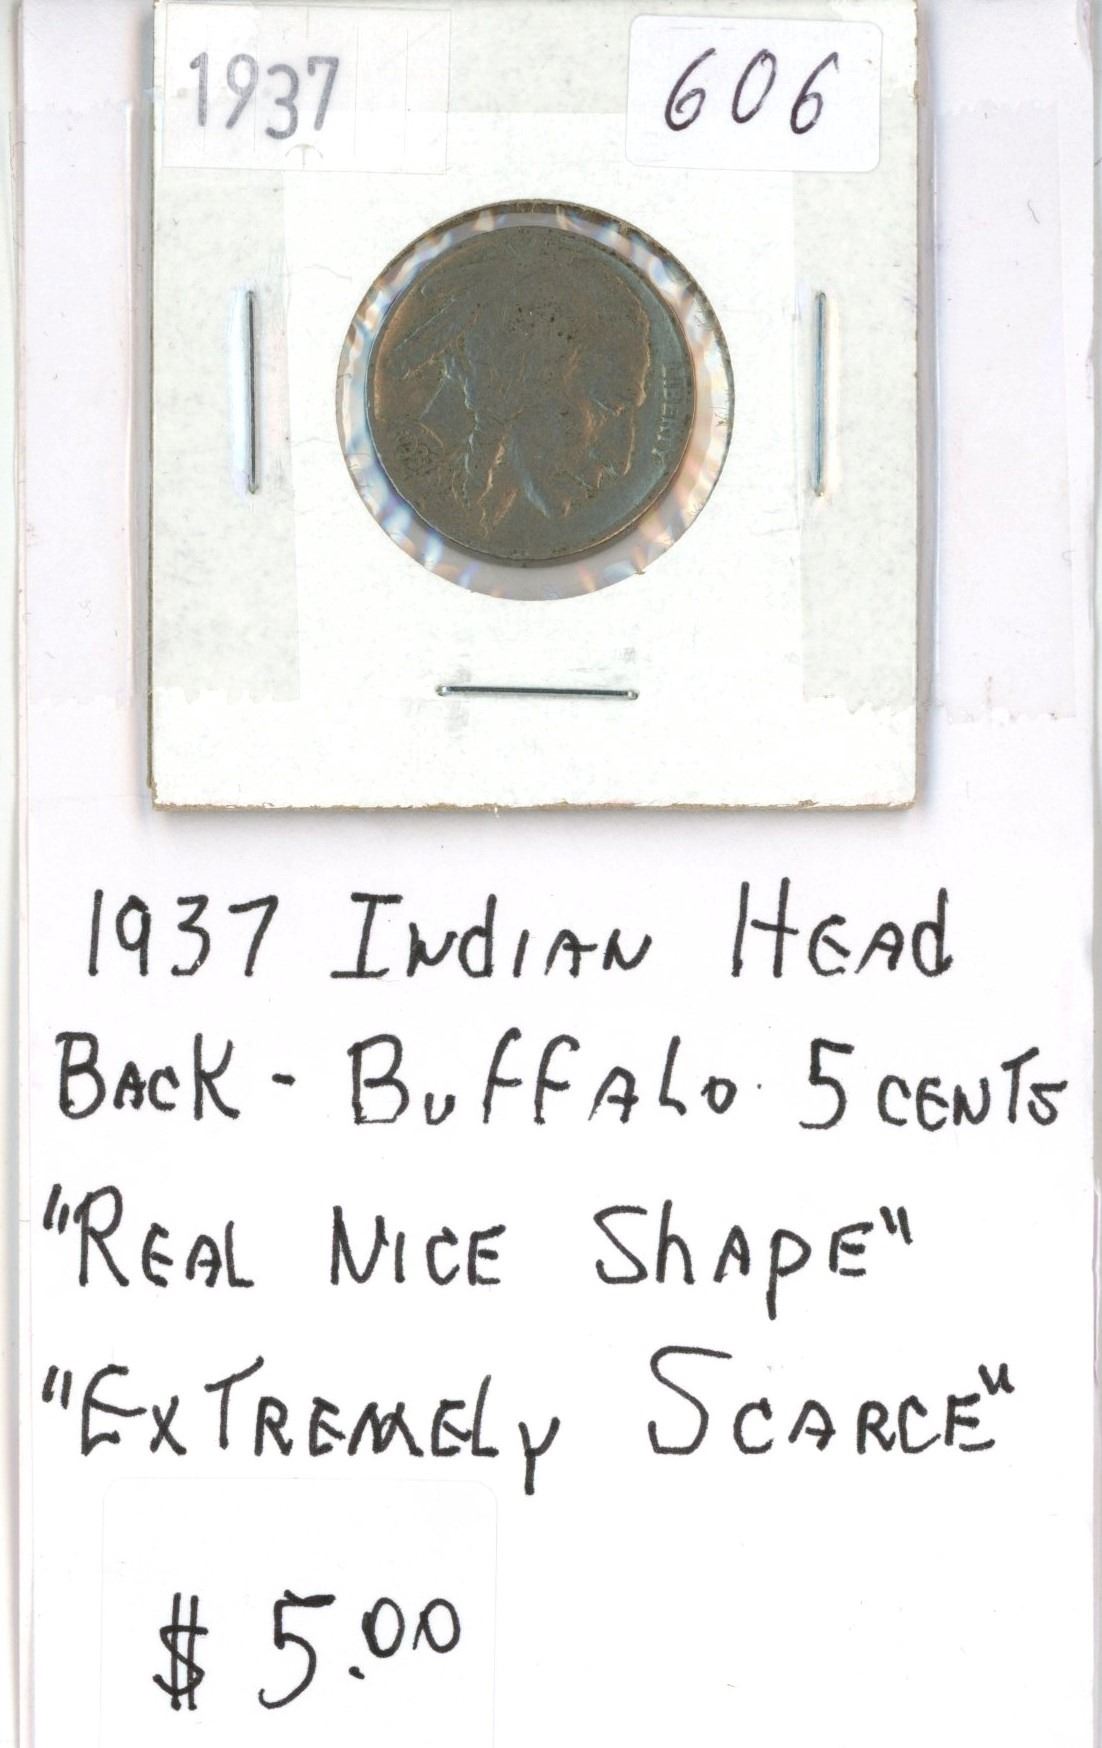 1937
606
LIBERTY
1937 INdIAN HEAd
BACK - BuffALo 5 CENTS
"REAL NICE ShAPE"
"ExTREMELy SCARCE"
$ 5.00